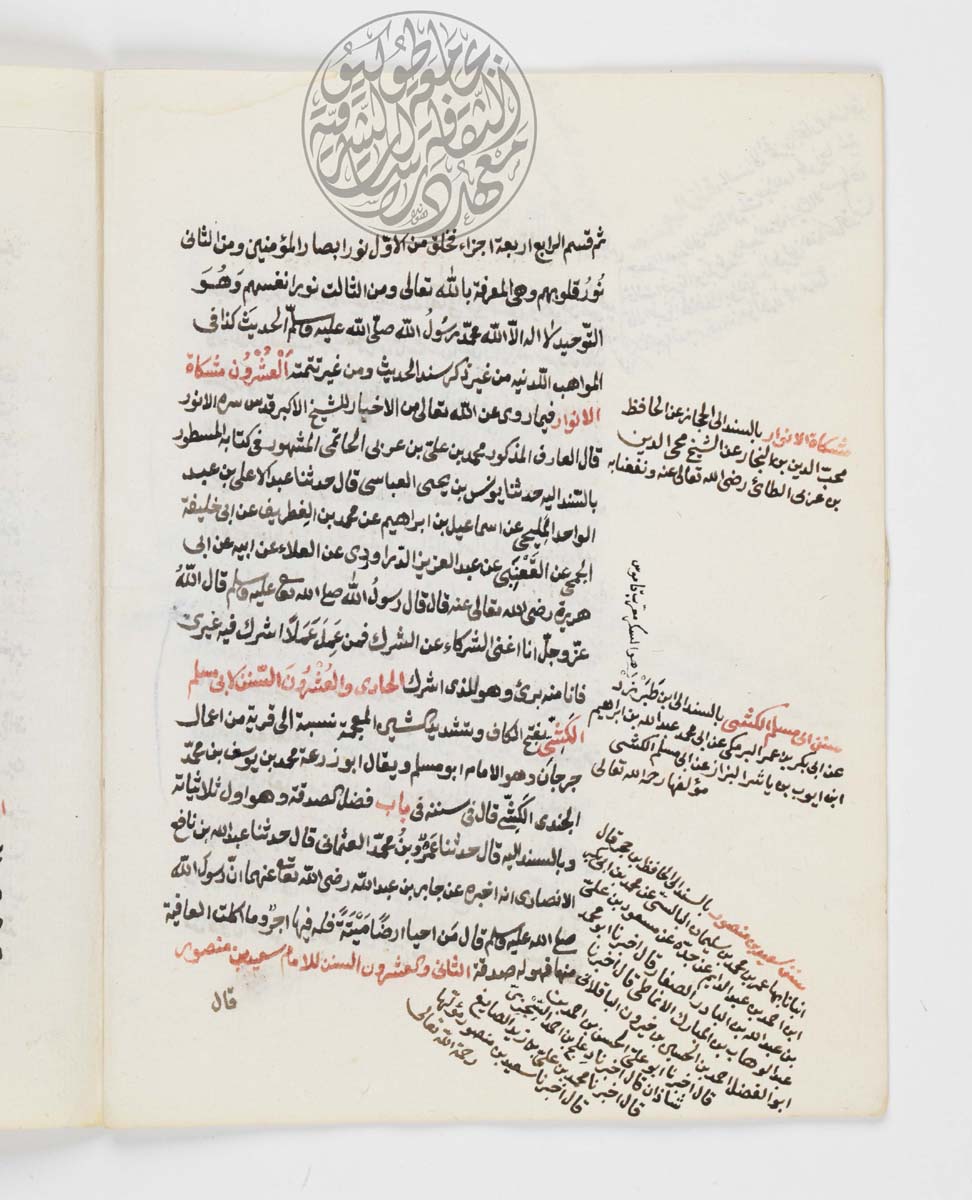 ثم قسم الرابع اربعة اجزاء فخلق من الاول نور ابصار المؤمنين ومن الثانى
نُورُ قلوبهم وهى المعرفة بالله تعالى ومن الثالث نور انفسهم وَهُوَ
التوحيد لا اله الّا الله محمّد رسُولُ الله صلّى الله عليه وسلّم الحديث كذا فى
المواهب اللدنيه من غير ذكر سند الحديث ومن غير تتمته العُشْرُون مشكاة
الانوار فيما روى عن الله تعالى من الاخبار للشيخ الاكبر قدس سره الانور
قال العارف المذكور محمد بن على بن عربى الحاتمى المشهور فى كتابه المسطور
بالسند اليه حدثنا يونس بن يحيى العباسى قال حدثنا عبد الاعلى بن عبد
الواحد المليحى عن اسماعيل بن ابراهيم عن محمد بن الغطريف عن ابى خليفة
الجمحى عن القَعْنَبى عن عبد العزيز الدراوردى عن العلاء عن ابيه عن ابى
هريرة رضى الله تعالى عنه قال قال رسولُ الله صلى الله تعالى عليه وسلم قال اللهُ
عزّ وجلّ انا اغنى الشركاء عن الشرك فمن عَمِلَ عَمَلًا اشرك فيه غيرى
فانا منه برئ وهو للذى اشرك الحادى والعُشْرُونَ السنن لابى مسلم
الكَشّى بفتح الكاف وتشديد الشين المعجمة نسبة الى قرية من اعمال
جرجان وهو الامام ابو مسلم ويقال ابو زرعة محمد بن يوسف بن محمّد
الجندى الكَشّى قال فى سننه فى باب فضل الصدقة وهو اول ثلاثياته
وبالسند اليه قال حدثنا عَمْرو بنُ محمّد العثمانى قال حدثنا عبد الله بن نافع
الانصارى انه اخبره عن جابر بن عبد الله رضى الله تعالى عنهما انّ رسول الله
صلى الله عليه وسلم قال مَن احيا ارضًا مَيْتَةً فله فيها اجرٌ وما اكلت العافية
منها فهو له صدقة الثانى والعشرون السنن للامام سعيد بن منصور
قال
مشكاة الانوار بالسند الى الحجار عن الحافظ
محبّ الدين بن النجار عن الشيخ محى الدين
بن عربى الطائى رضى الله تعالى عنه ونفعنا به
سنن ابى مسلم الكشى بالسند الى ابن طَبَرْزَد
عن ابى بكر بن عمر البرمكى عن ابى محمد عبد الله بن ابراهيم
ابن ايوب بن ياشر البزار عن ابى مسلم الكشى
مؤلفها رحمه الله تعالى
سنن سعيد بن منصور بالسند الى الحافظ بن حجر قال
انبانا بها عمر بن محمد بن سليمان البالسى عن محمد بن ابى بكر
ابن احمد بن عبد الدايم عن جدّه عن مسعود بن علىّ
بن عبد الله بن النادر الصفار قال اخبرنا ابو محمد
عبد الوهاب بن المبارك الانماطى قال اخبرنا
ابو الفضل احمد بن الحسن بن خيرون الباقلانى
قال اخبرنا ابو علىّ الحسن بن احمد بن
شاذان قال اخبرنا دعلج بن احمد السّجزى
قال اخبرنا محمد بن على بن زيد الصايغ
قال اخبرنا سعيد بن منصور مؤلفها
رحمة الله تعالى
جامعة طوكيو
معهد دراسات الثقافة الشرقية